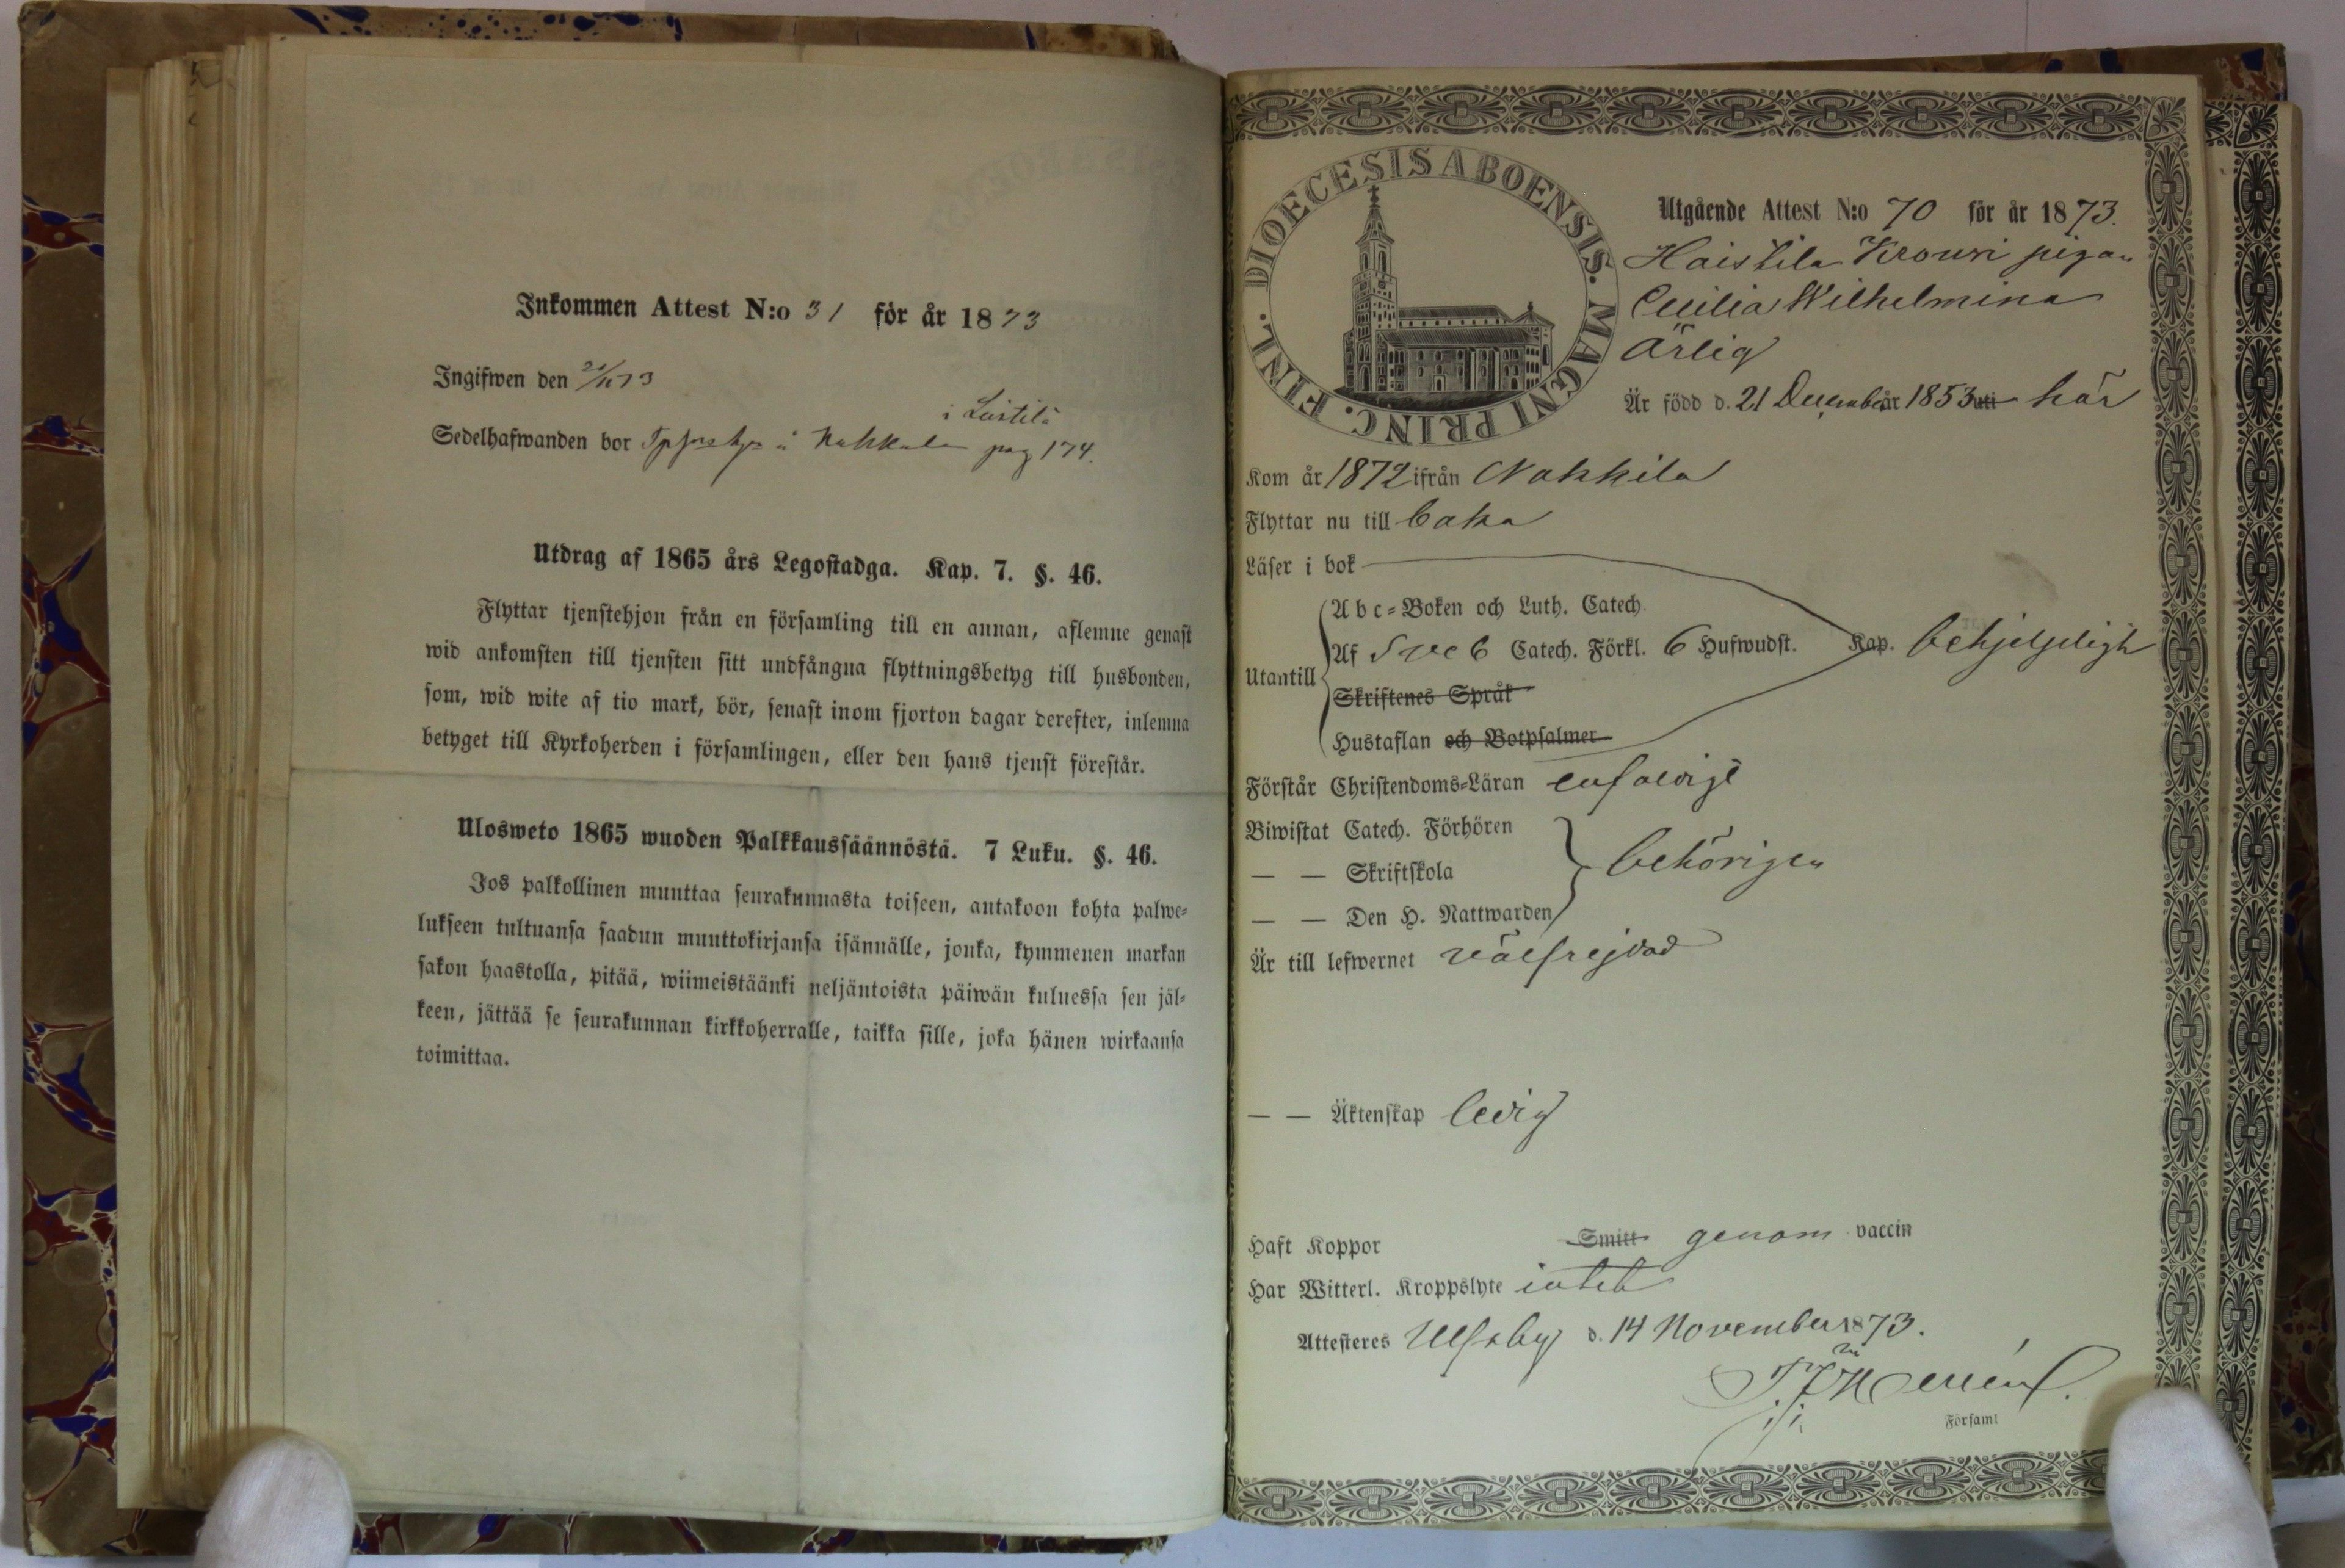 Inkommen Attest N:o 31 för år 1873
Ingifwen den
i Leistilä
Sedelhafwanden bor pag 174.
Utdrag af 1865 års Legostadga. Kap. 7. §. 46.
Flyttar tjenstehjon från en församling till en annan, aflemne genast
wid ankomsten till tjensten sitt undfångna flyttningsbetyg till husbonden,
som, wid wite af tio mark, bör, senast inom fjorton dagar derefter, inlemna
betyget till Kyrkoherden i församlingen, eller den hans tjenst förestår.
Ulosweto 1865 wuoden Palkkaussäännöstä. 7 Luku. §. 46.
Jos palkollinen muuttaa seurakunnasta toiseen, antakoon kohta palwe-
lukseen tultuansa saadun muuttokirjansa isännälle, jonka, kymmenen markan
sakon haastolla, pitää, wiimeistäänki neljäntoista päiwän kuluessa sen jäl-
keen, jättää se seurakunnan kirkkoherralle, taikka sille, joka hänen wirkaansa
toimittaa.
DIOECESIS ABOENSIS. MAGNI PRINC. FINL.
Utgående Attest N:o 70 för år 1873.
Haistila Krouvi pigan
Cecilia Wilhelmina
Ärlig
Är född d. 21 December år 1853 uti här
Kom år 1872 ifrån Nakkila
Flyttar nu till baka
Läser i bok
Abc-Boken och Luth. Catech.
Utantill Af Sveb Catech. Förkl. 6 Hufwudst. Kap. behjelpeligt
Skriftenes Språk
Hustaflan och Botpsalmer
Förstår Christendoms-Läran enfaldigt
Biwistat Catech. Förhören
— — Skriftskola behörigen
— — Den H. Nattwarden
Är till lefwernet välfrejdad
— — Äktenskap ledig
Haft Koppor Smitt genom vaccin
Har Witterl. Kroppslyte intet
Attesteres Ulfsby d. 14 November 1873.
Församl